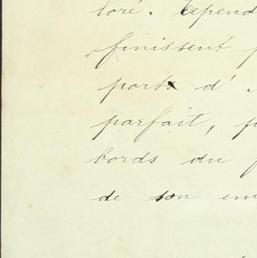 loré. Cepend
finissent p
ports d'
parfait, p
bords du f
de son em